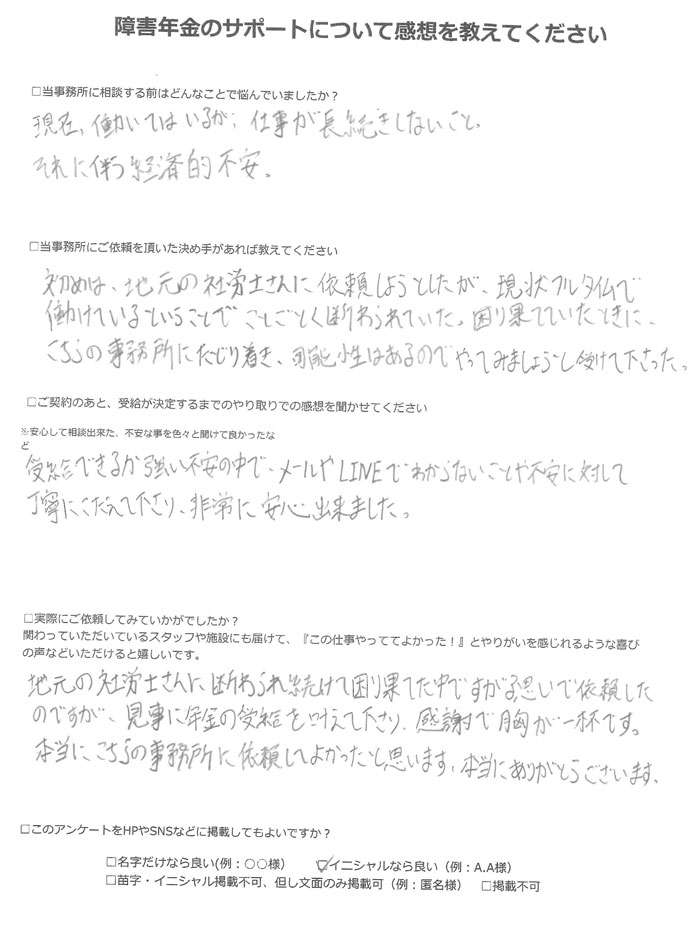 障害年金のサポートについて感想を教えてください
□当事務所に相談する前はどんなことで悩んでいましたか？
現在、働いてはいるが、仕事が長続きしないこと。
それに伴う経済的不安。
□当事務所にご依頼を頂いた決め手があれば教えてください
初めは、地元の社労士さんに依頼しようとしたが、現状フルタイムで
働けているということでことごとく断わられていた。困り果てていたときに、
こちらの事務所にたどり着き、可能性はあるのでやってみましょうと受けて下さった。
□ご契約のあと、受給が決定するまでのやり取りでの感想を聞かせてください
※安心して相談出来た、不安な事を色々と聞けて良かったな
ど
受給できるか強い不安の中で、メールやLINEでわからないことや不安に対して
丁寧にこたえて下さり、非常に安心出来ました。
□実際にご依頼してみていかがでしたか？
関わっていただいているスタッフや施設にも届けて、『この仕事やっててよかった！』とやりがいを感じれるような喜び
の声などいただけると嬉しいです。
地元の社労士さんに断わられ続けて困り果てた中ですがる思いで依頼した
のですが、見事に年金の受給を叶えて下さり、感謝で胸が一杯です。
本当にこちらの事務所に依頼してよかったと思います。本当にありがとうございます。
□このアンケートをHPやSNSなどに掲載してもよいですか？
□名字だけなら良い(例：○○様） ☑イニシャルなら良い（例：A.A様）
□苗字・イニシャル掲載不可、但し文面のみ掲載可（例：匿名様） □掲載不可